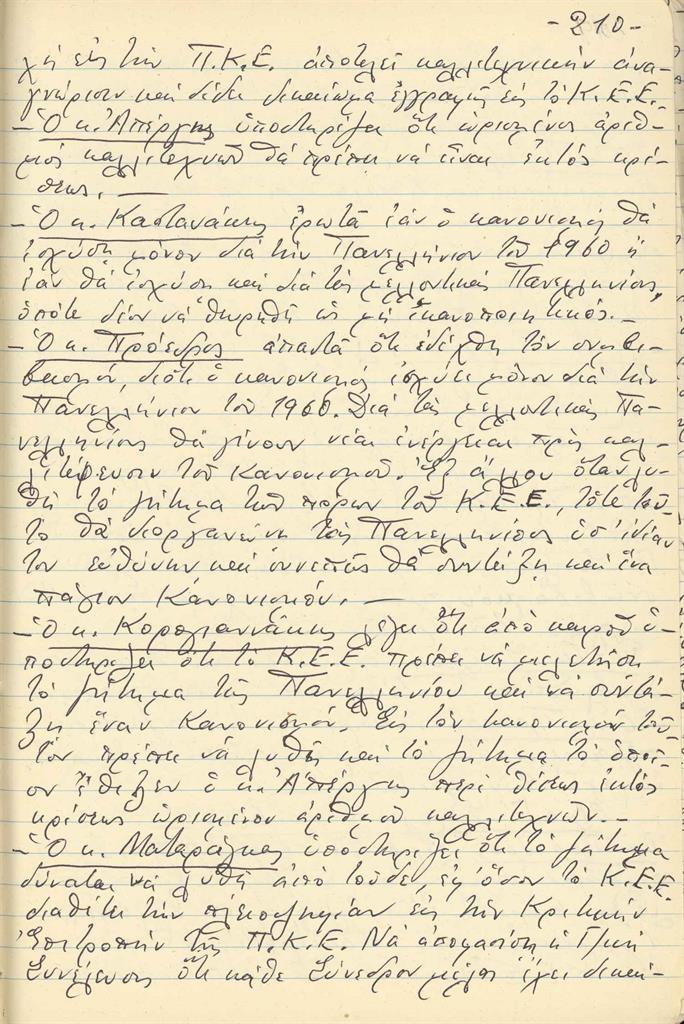 -210-
χὴ εἰς τὴν Π.Κ.Ε. ἀποτελεῖ καλλιτεχνικὴν ἀνα-
γνώρισιν καὶ δίδει δικαίωμα ἐγγραφῆς εἰς τὸ Κ.Ε.Ε.-
- Ὁ κ. Ἀπέργης ὑποστηρίζει ὅτι ὡρισμένος ἀριθ-
μὸς καλλιτεχνῶν θὰ πρέπει νὰ εἶναι ἐκτὸς κρί-
σεως. —
- Ὁ κ. Καστανάκης ἐρωτᾶ ἐάν ὁ κανονισμὸς θὰ
ἰσχύσῃ μόνον διὰ τὴν Πανελλήνιον τοῦ 1960 ἢ
ἐάν θὰ ἰσχύσῃ καὶ διὰ τὰς μελλοντικὰς Πανελληνίους,
ὁπότε δέον νὰ θεωρηθῇ ὡς μὴ ἱκανοποιητικός.-
- Ὁ κ. Πρόεδρος ἀπαντᾶ ὅτι ἐδέχθη τὸν συμβι-
βασμόν, διότι ὁ κανονισμὸς ἰσχύει μόνον διὰ τὴν
Πανελλήνιον τοῦ 1960. Διὰ τὰς μελλοντικὰς Πα-
νελληνίους θὰ γίνουν νέαι ἐνέργειαι πρὸς καλ-
λιτέρευσιν τοῦ κανονισμοῦ. Ἐξ ἄλλου ὅταν λυ-
θῇ τὸ ζήτημα τῶν πόρων τοῦ Κ.Ε.Ε., τότε τοῦ-
το θὰ διοργανώνῃ τὰς Πανελληνίους ὑπ' ἰδίαν
του εὐθύνην καὶ συνεπῶς θὰ συντάξῃ καὶ ἕνα
πάγιον Κανονισμόν. —
- Ὁ κ. Κορογιαννάκης λέγει ὅτι ἀπὸ καιροῦ ὑ-
ποστηρίζει ὅτι τὸ Κ.Ε.Ε. πρέπει νὰ μελετήσῃ
τὸ ζήτημα τῆς Πανελληνίου καὶ νὰ συντά-
ξῃ ἕναν Κανονισμόν. Εἰς τὸν κανονισμὸν τοῦ-
τον πρέπει νὰ λυθῇ καὶ τὸ ζήτημα τὸ ὁποῖ-
ον ἔθιξεν ὁ κ. Ἀπέργης περὶ θέσεως ἐκτὸς
κρίσεως ὡρισμένου ἀριθμοῦ καλλιτεχνῶν.-
- Ὁ κ. Ματαράγκας ὑποστηρίζει ὅτι τὸ ζήτημα
δύναται νὰ λυθῇ ἀπὸ τοῦδε, ἐφ' ὅσον τὸ Κ.Ε.Ε.
διαθέτει τὴν πλειοψηφίαν εἰς τὴν Κριτικὴν
Ἐπιτροπὴν τῆς Π.Κ.Ε. Νὰ ἀποφασίσῃ ἡ Γενικὴ
Συνέλευσις ὅτι κάθε Σύνεδρον μέλος ἔχει δικαί-